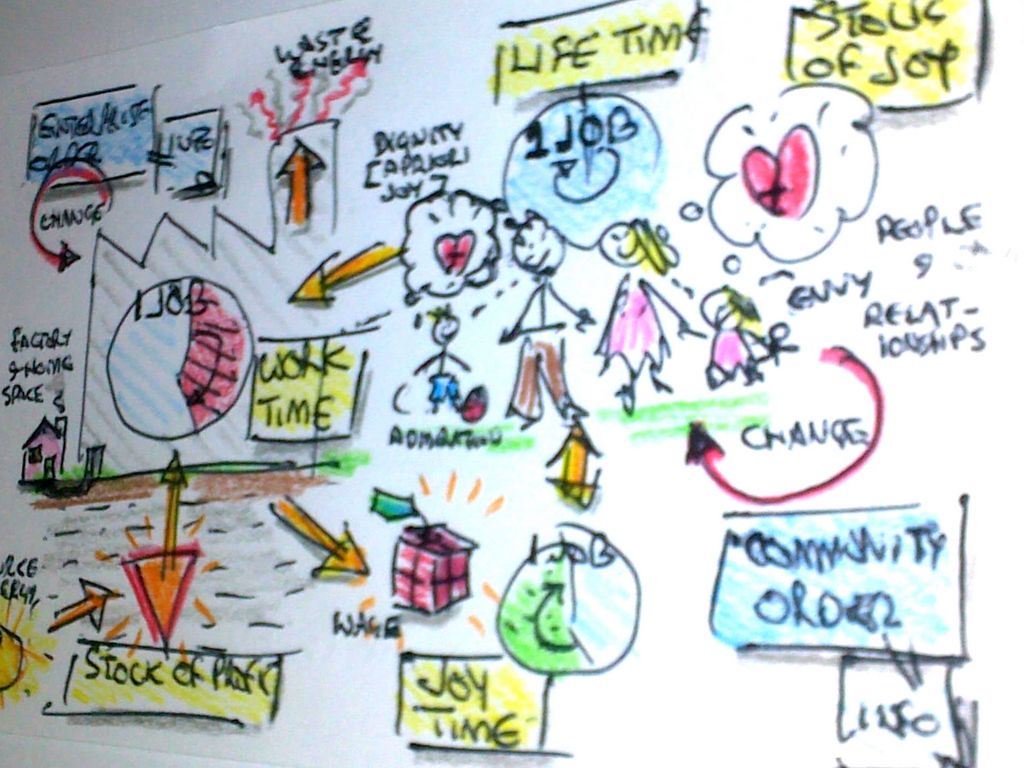 WASTE
ENERGY
LIFE TIME
STOCK
OF JOY
ENTERPRISE
ORDER
INFO
DIGNITY
[APRIORI
JOY]
1 JOB
CHANGE
PEOPLE
&
RELAT-
IONSHIPS
ENVY
1 JOB
FACTORY
& HOME
SPACE
WORK
TIME
ADMIRATION
CHANGE
1 JOB
WAGE
COMMUNITY
ORDER
STOCK OF PROFIT
JOY
TIME
INFO